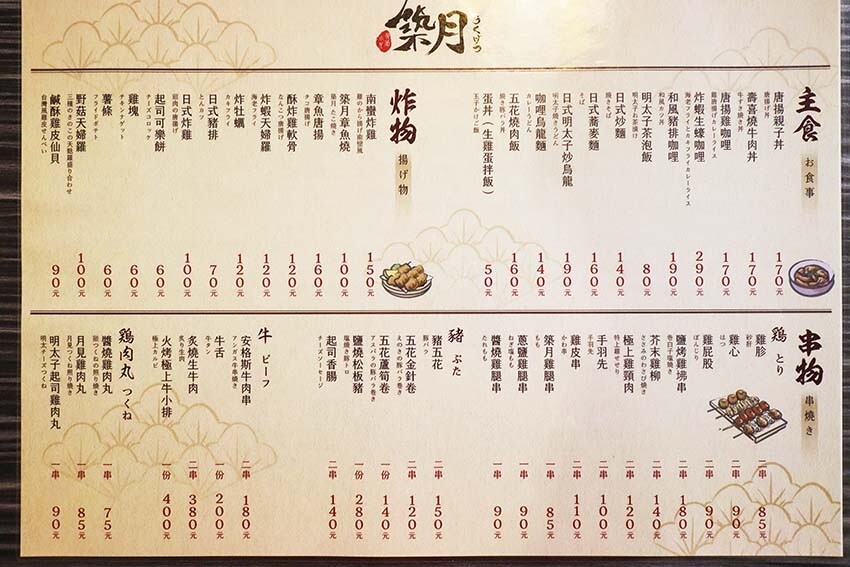 築月
つくげつ
主食
お食事
唐揚親子丼
唐揚げ丼
170元
壽喜燒牛肉丼
牛すき焼き丼
170元
唐揚雞咖哩
鶏唐揚げカレーライス
170元
炸蝦生蠔咖哩
海老フライとカキフライカレーライス
290元
和風豬排咖哩
190元
明太子茶泡飯
明太子お茶漬け
80元
日式炒麵
焼きそば
140元
日式蕎麥麵
そば
160元
日式明太子炒烏龍
明太子焼きうどん
190元
咖哩烏龍麵
カレーうどん
140元
五花燒肉飯
焼き豚バラ丼
160元
蛋丼（生雞蛋拌飯）
玉子かけご飯
50元
炸物
揚げ物
南蠻炸雞
鶏のから揚げ南蛮風
150元
築月章魚燒
築月たこ焼き
100元
章魚唐揚
タコ唐揚げ
160元
酥炸雞軟骨
なんこつ唐揚げ
120元
炸蝦天婦羅
海老フライ
120元
炸牡蠣
カキフライ
120元
日式豬排
とんカツ
70元
日式炸雞
鶏肉の唐揚げ
100元
起司可樂餅
チーズコロッケ
60元
雞塊
チキンナゲット
60元
薯條
フライドポテト
60元
野菇天婦羅
三種のきのこの天麩羅盛り合わせ
100元
鹹酥雞皮仙貝
台湾風鶏皮せんべい
90元
串物
串焼き
鶏 とり
雞胗
砂肝
一串 85元
雞心
はつ
一串 90元
雞屁股
ぼんじり
一串 90元
鹽烤雞坲串
二串 180元
芥末雞柳
ささみのわさび焼き
二串 140元
極上雞頸肉
特上鶏せせり
一串 120元
手羽先
手羽先
二串 100元
雞皮串
かわ串
二串 110元
築月雞腿串
もも
一串 85元
蔥鹽雞腿串
ねぎ塩もも
一串 90元
醬燒雞腿串
たれもも
一串 90元
豬 ぶた
豬五花
豚バラ
二串 150元
五花金針卷
えのきの豚バラ巻き
二串 120元
五花蘆筍卷
アスパラの豚バラ巻き
一份 140元
鹽燒松板豬
塩焼き豚トロ
一份 280元
起司香腸
チーズソーセージ
二串 140元
牛 ビーフ
安格斯牛肉串
アンガス牛串焼き
二串 180元
牛舌
牛タン
一份 200元
炙燒生牛肉
炙り生肉
二串 380元
火烤極上牛小排
極上カルビ
一份 400元
鶏肉丸 つくね
醬燒雞肉丸
鶏つくねの照り焼き
一串 75元
月見雞肉丸
月見つくね照り焼き
一串 85元
明太子起司雞肉丸
明太チーズつくね
一串 90元